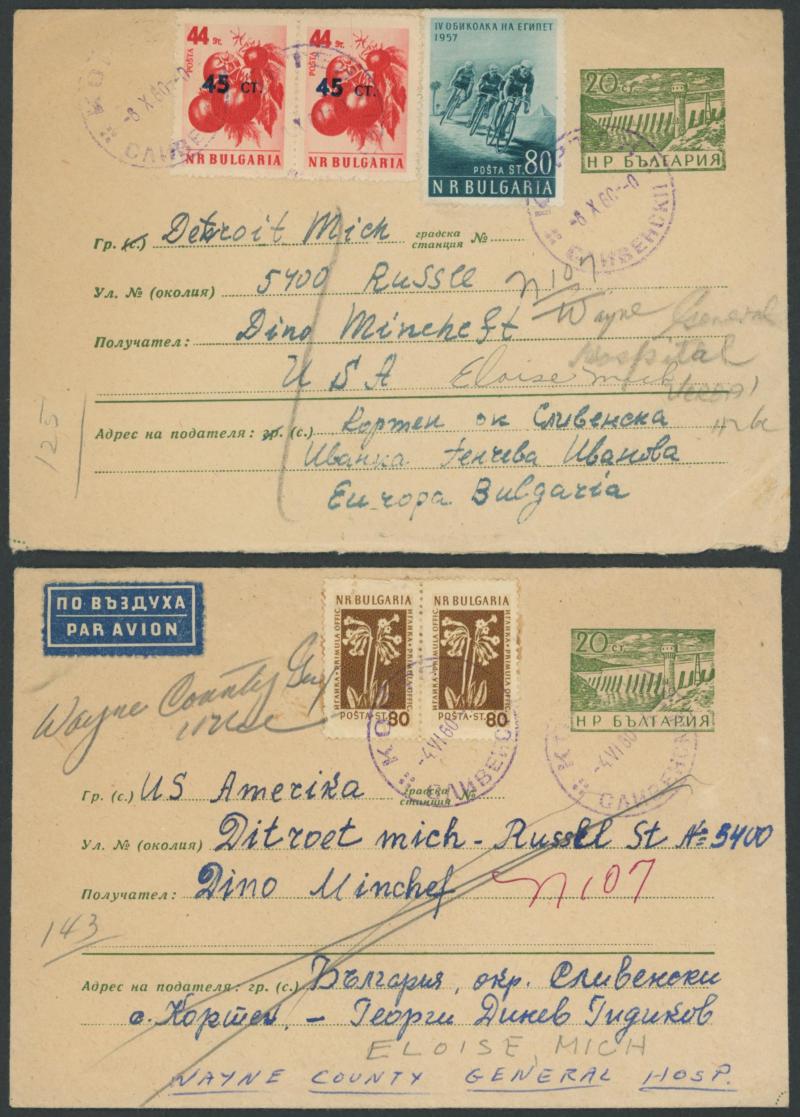 44 ST. POŠTA 45 СТ. NR BULGARIA
44 ST. POŠTA 45 СТ. NR BULGARIA
IV ОБИКОЛКА НА ЕГИПЕТ
1957
POŠTA ST. 80
NR BULGARIA
20 СТ.
НР БЪЛГАРИЯ
-8 X 60--0
СЛИВЕ
-8 X 60--0
СЛИВЕНСКИ
Гр. (с.) Detroit Mich градска станция №
Ул. № (околия) 5400 Russle n 107
Wayne General
Получател: Dino Mincheft
Hospital
USA Eloise Mich
125
Адрес на подателя: гр. (с.) Кортен ок Сливенска
Иванка Генчева Иванова
Europa Bulgaria
ПО ВЪЗДУХА
PAR AVION
NR BULGARIA
ИГЛИКА • PRIMULA OFFIC
POŠTA • ST. 80
NR BULGARIA
ИГЛИКА • PRIMULA OFFIC
POŠTA • ST. 80
20 СТ.
НР БЪЛГАРИЯ
Wayne County
КО
-4 VI 60
СЛИВЕНС
-4 VI 60
СЛИВЕНСКИ
Гр. (с.) US Amerika градска станция №
Ул. № (околия) Ditroet mich - Russel St № 5400
Получател: Dino Minchef n 107
143
Адрес на подателя: гр. (с.) България, окр. Сливенски
с. Кортен, - Георги Динев Гидиков
ELOISE, MICH
WAYNE COUNTY GENERAL HOSP.